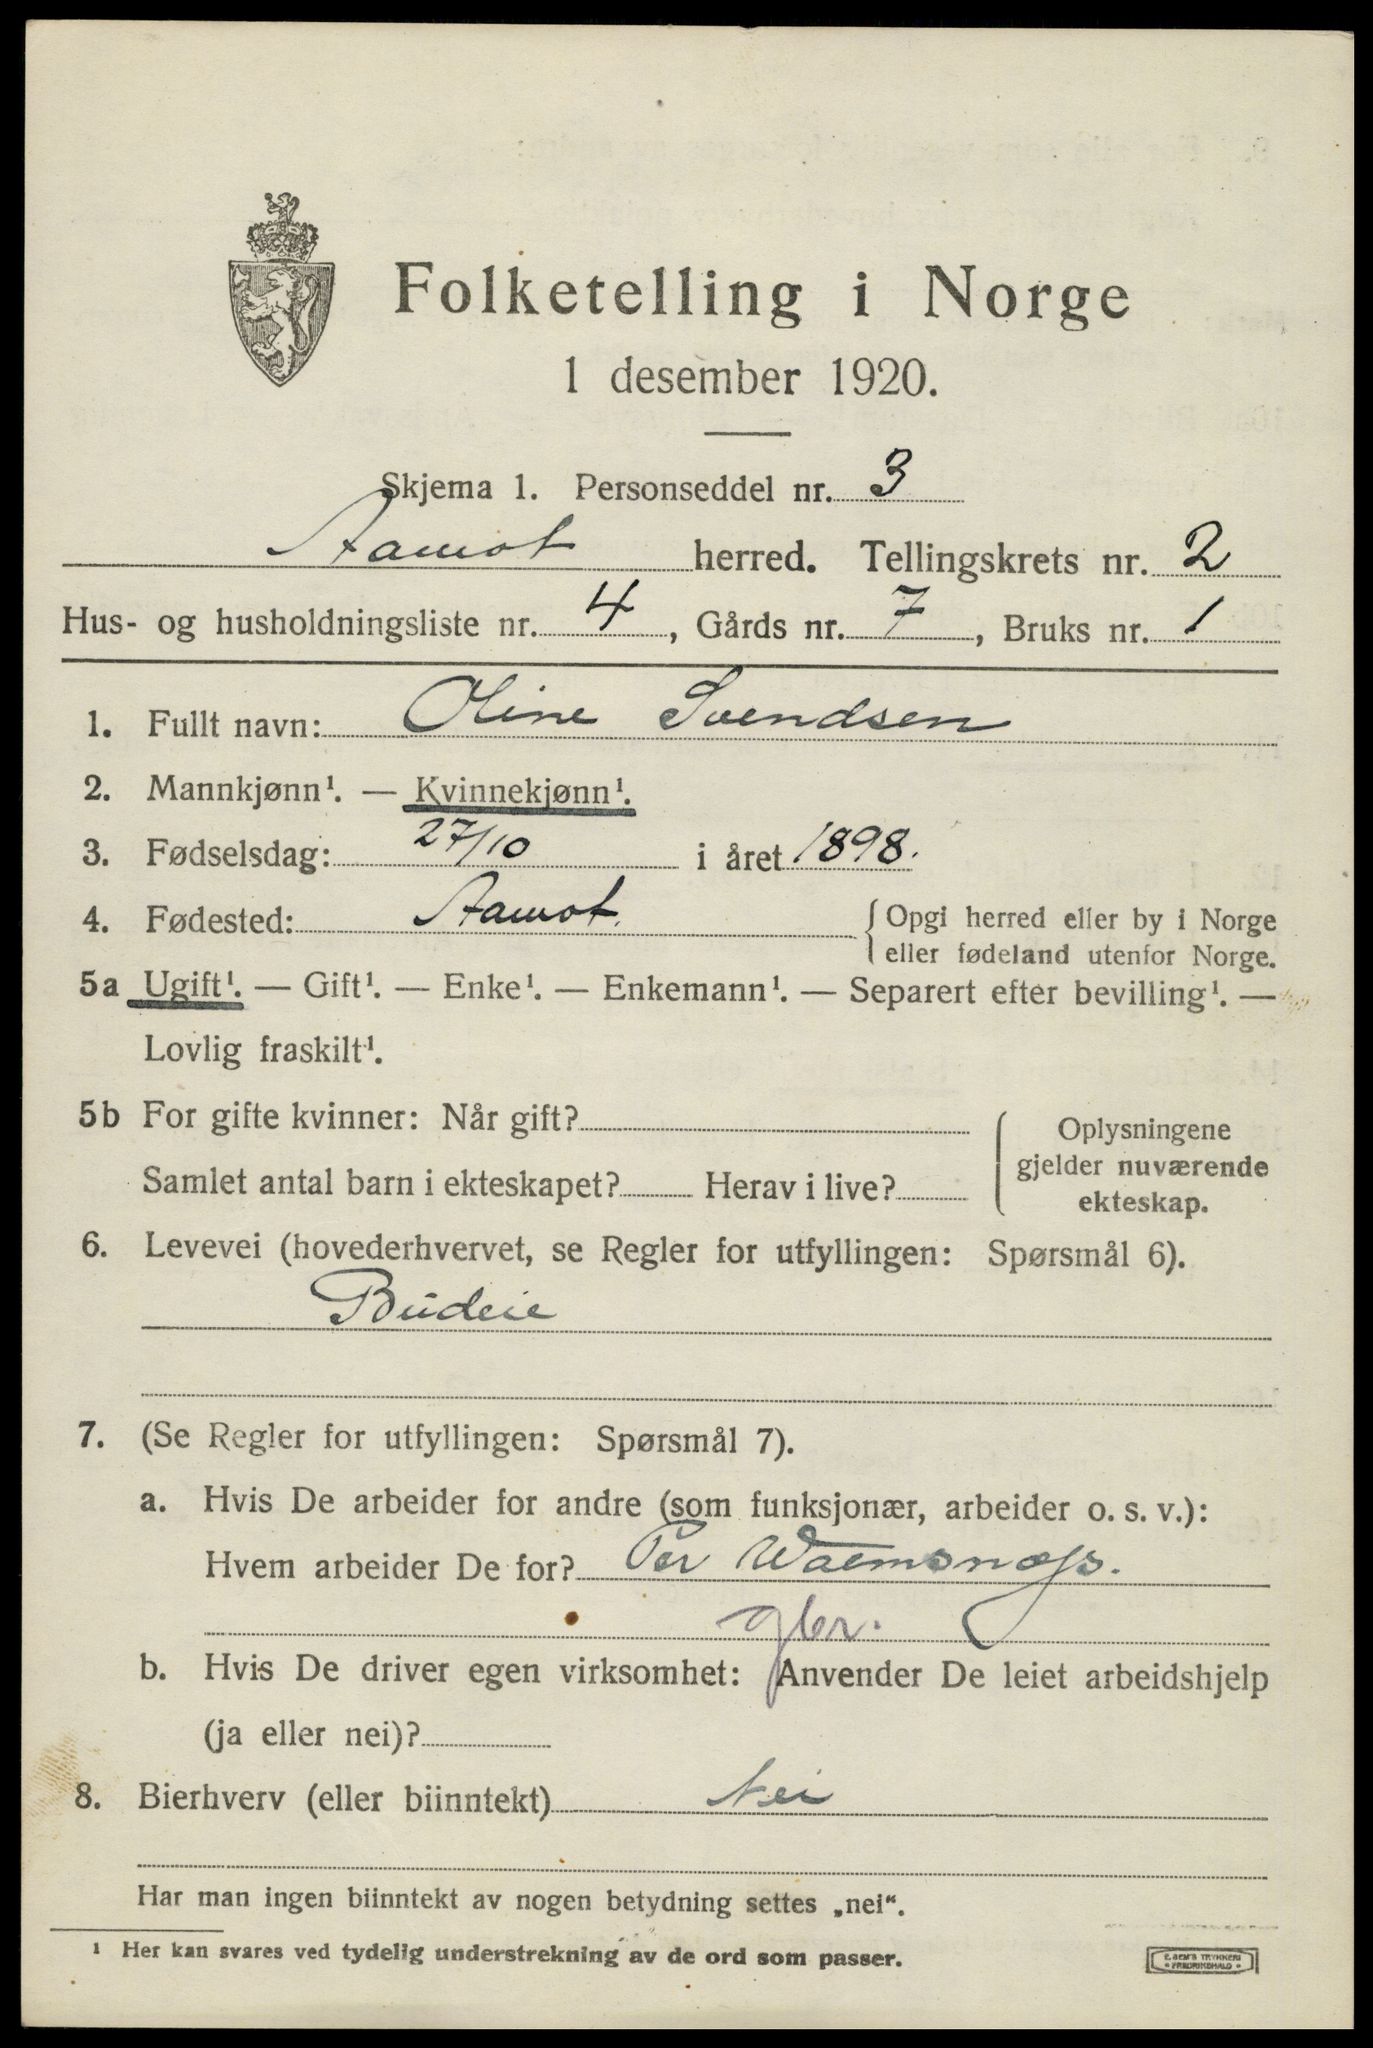 Folketelling i Norge
1 desember 1920.
Skjema 1. Personseddel nr. 3
Aamot herred. Tellingskrets nr. 2
Hus- og husholdningsliste nr. 4, Gårds nr. 7, Bruks nr. 1
1. Fullt navn: Oline Svendsen
2. Mannkjønn¹. — Kvinnekjønn¹.
3. Fødselsdag: 27/10 i året 1898.
4. Fødested: Aamot. { Opgi herred eller by i Norge
eller fødeland utenfor Norge.
5a Ugift¹. — Gift¹. — Enke¹. — Enkemann¹. — Separert efter bevilling¹. —
Lovlig fraskilt¹.
5b For gifte kvinner: Når gift?
Samlet antal barn i ekteskapet? Herav i live?
Oplysningene
gjelder nuværende
ekteskap.
6. Levevei (hovederhvervet, se Regler for utfyllingen: Spørsmål 6).
Budeie
7. (Se Regler for utfyllingen: Spørsmål 7).
a. Hvis De arbeider for andre (som funksjonær, arbeider o. s. v.):
Hvem arbeider De for? Per
gbr.
b. Hvis De driver egen virksomhet: Anvender De leiet arbeidshjelp
(ja eller nei)?
8. Bierhverv (eller biinntekt) Nei
Har man ingen biinntekt av nogen betydning settes „nei“.
¹ Her kan svares ved tydelig understrekning av de ord som passer.
E. SEM'S TRYKKERI
• FREDRIKSHALD •